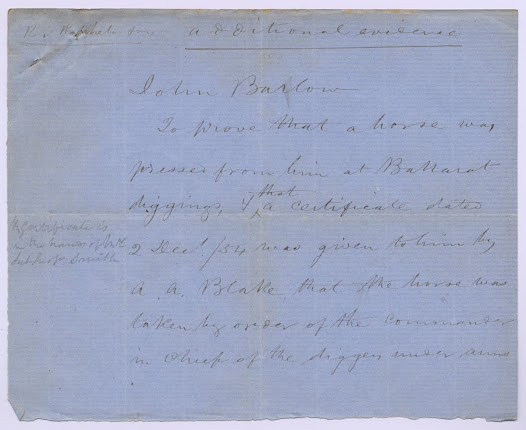 additional evidence
John Barlow
To prove that a horse was
pressed from him at Ballarat
diggings, & that a certificate dated
2 Decr /54 was given to him by
A. A. Blake that the horse was
taken by order of the commander
in Chief of the diggers under arms
certificate is
in the hands of Mr
Smith